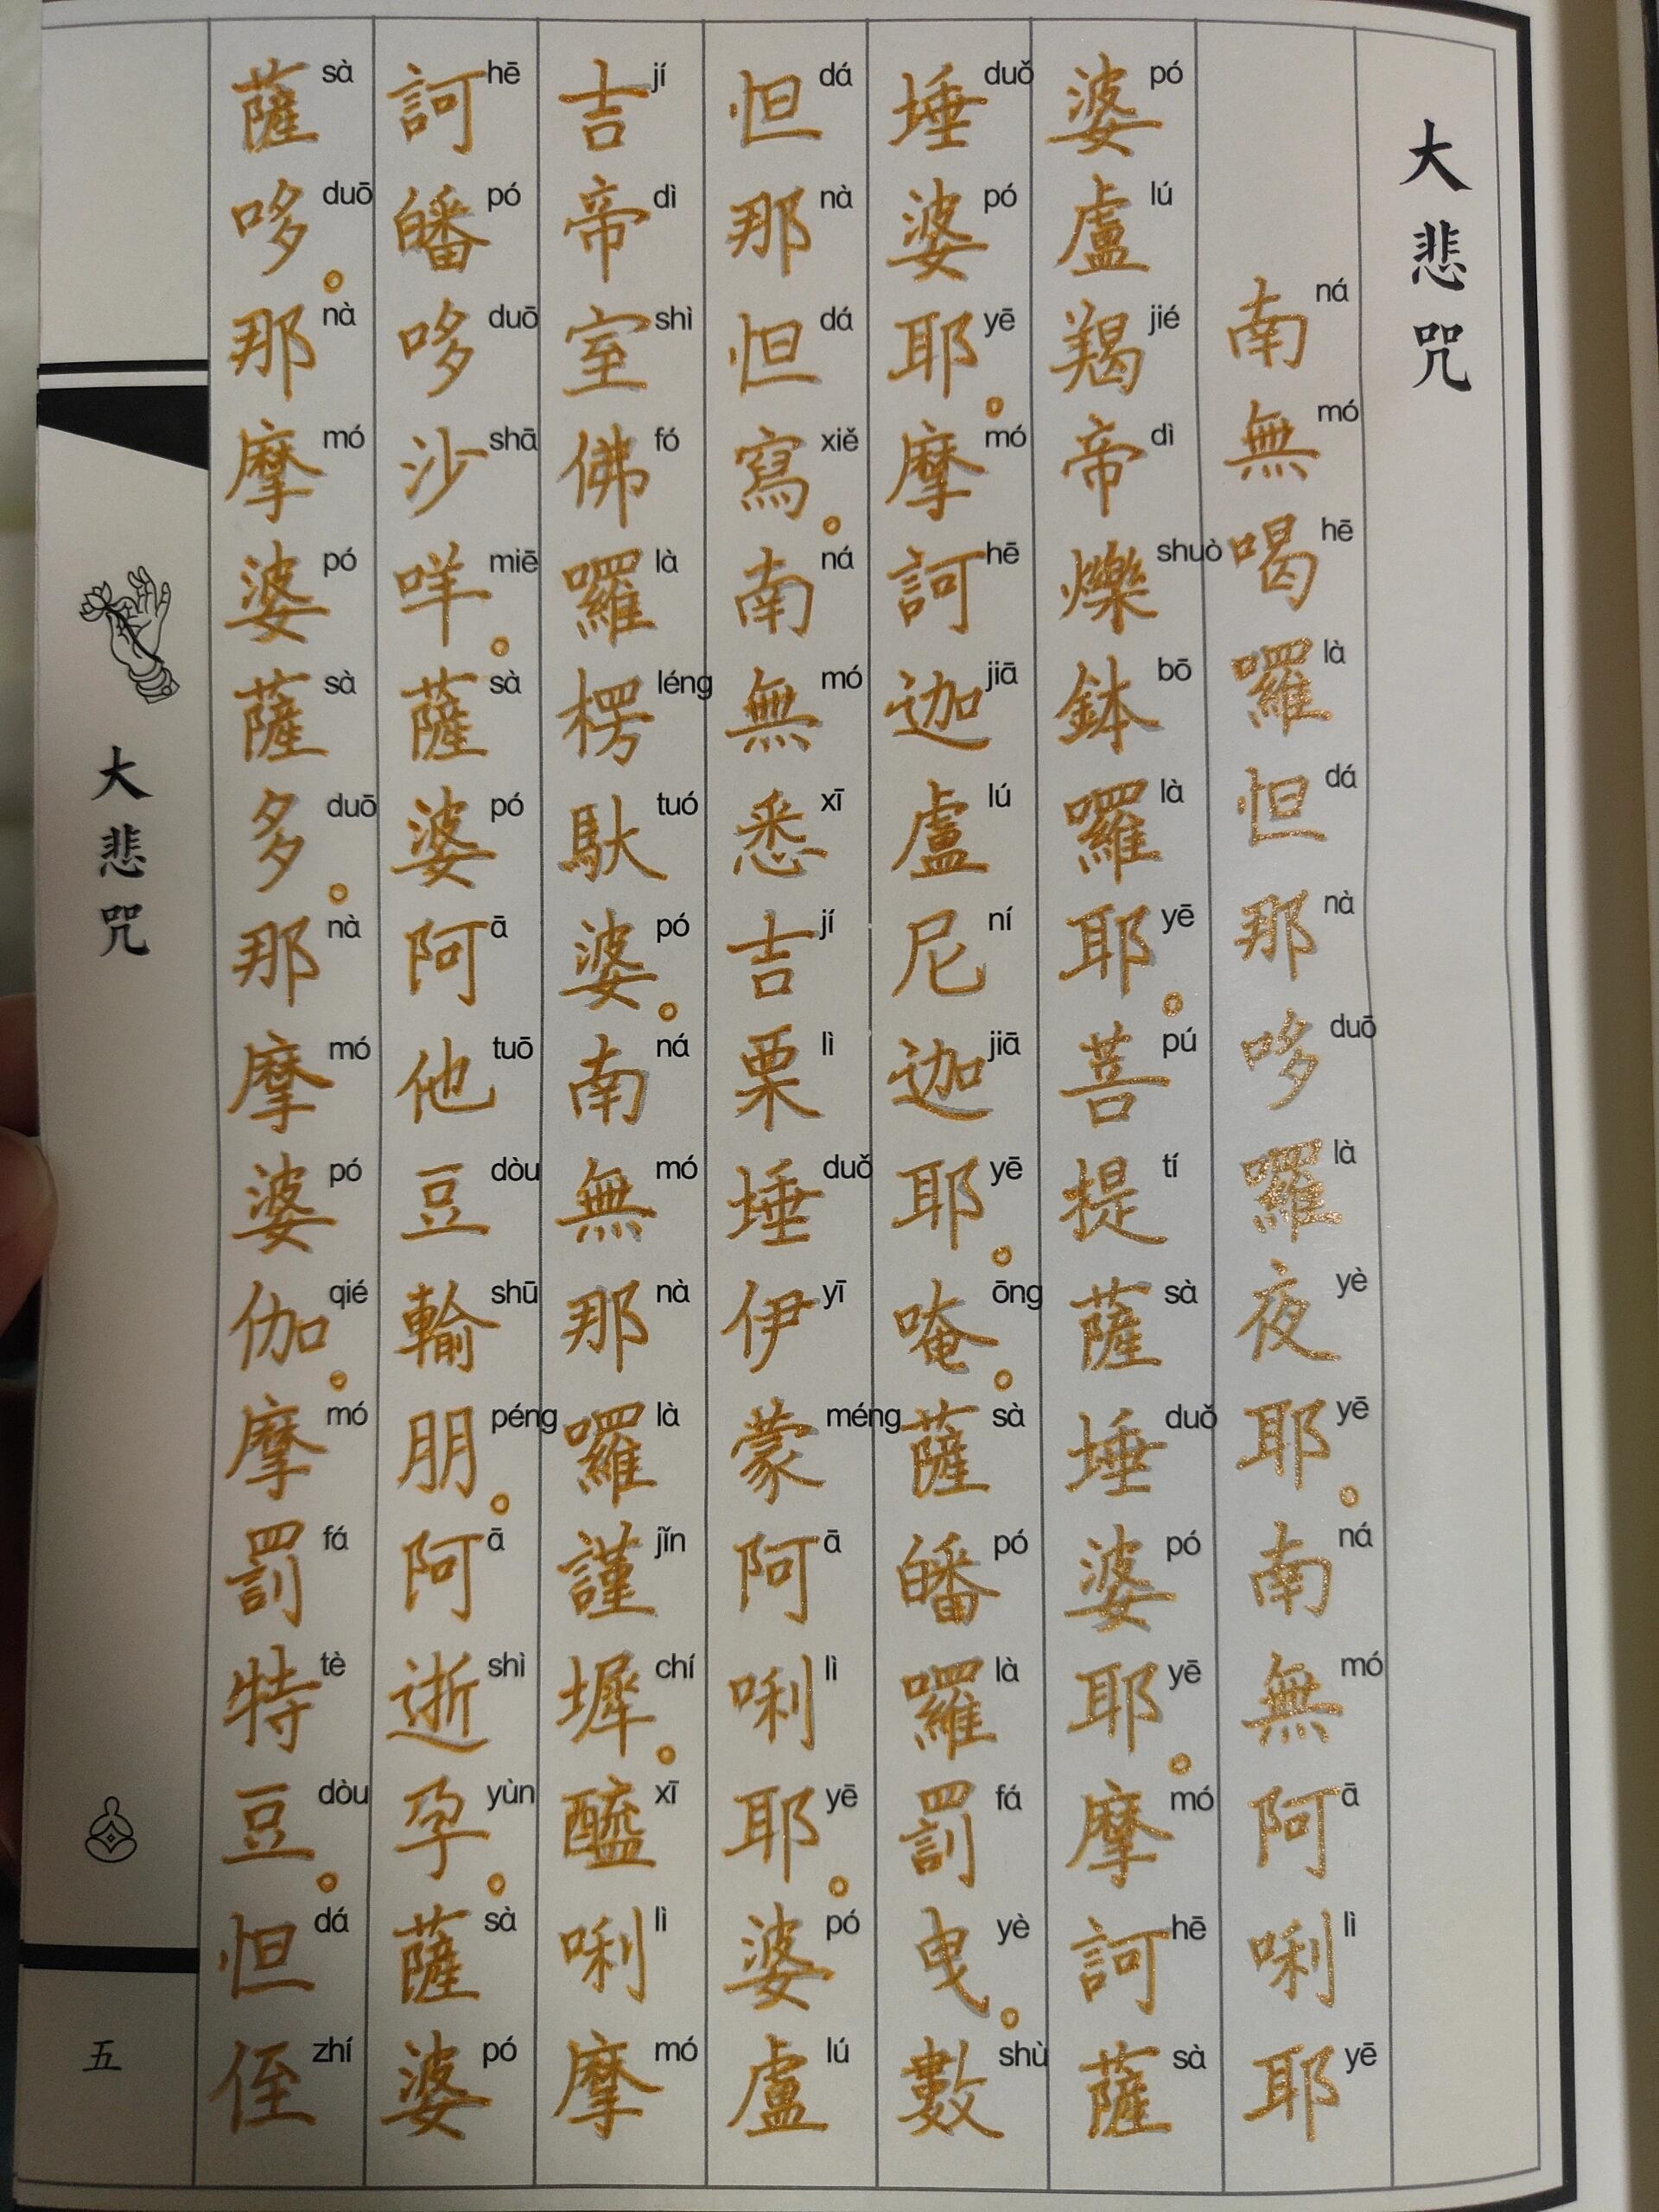 大悲咒
南無喝囉怛那哆囉夜耶。南無阿唎耶
ná mó hē là dá nà duō là yè yē ná mó ā lì yē
婆盧羯帝爍鉢囉耶。菩提薩埵婆耶。摩訶薩
pó lú jié dì shuò bō là yē pú tí sà duǒ pó yē mó hē sà
埵婆耶。摩訶迦盧尼迦耶。唵。薩皤囉罰曳。數
duǒ pó yē mó hē jiā lú ní jiā yē ōng sà pó là fá yè shù
怛那怛寫。南無悉吉栗埵伊蒙阿唎耶。婆盧
dá nà dá xiě ná mó xī jí lì duǒ yī méng ā lì yē pó lú
吉帝室佛囉楞馱婆。南無那囉謹墀。醯唎摩
jí dì shì fó là léng tuó pó ná mó nà là jǐn chí xī lì mó
訶皤哆沙咩。薩婆阿他豆輸朋。阿逝孕。薩婆
hē pó duō shā miē sà pó ā tuō dòu shū péng ā shì yùn sà pó
薩哆。那摩婆薩多。那摩婆伽。摩罰特豆。怛侄
sà duō nà mó pó sà duō nà mó pó qié mó fá tè dòu dá zhí
大悲咒
五